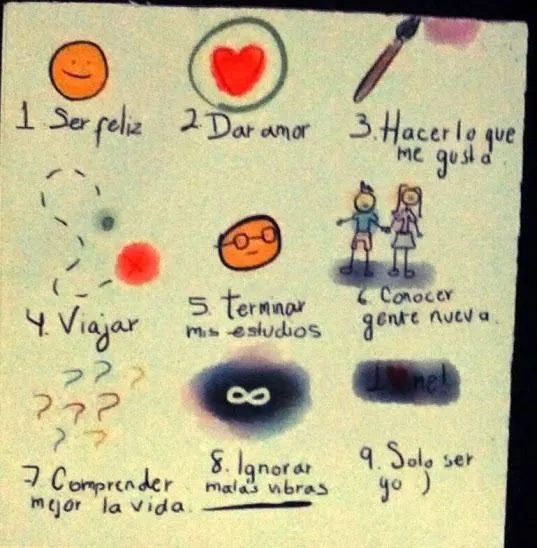 1 Ser feliz
2. Dar amor
3. Hacer lo que
me gusta.
4. Viajar
5. terminar
mis estudios
6. Conocer
gente nueva.
? ? ?
? ? ? ?
? ?
7 Comprender
mejor la vida.
∞
8. Ignorar
malas vibras
I ♥ me!
9. Solo ser
yo )